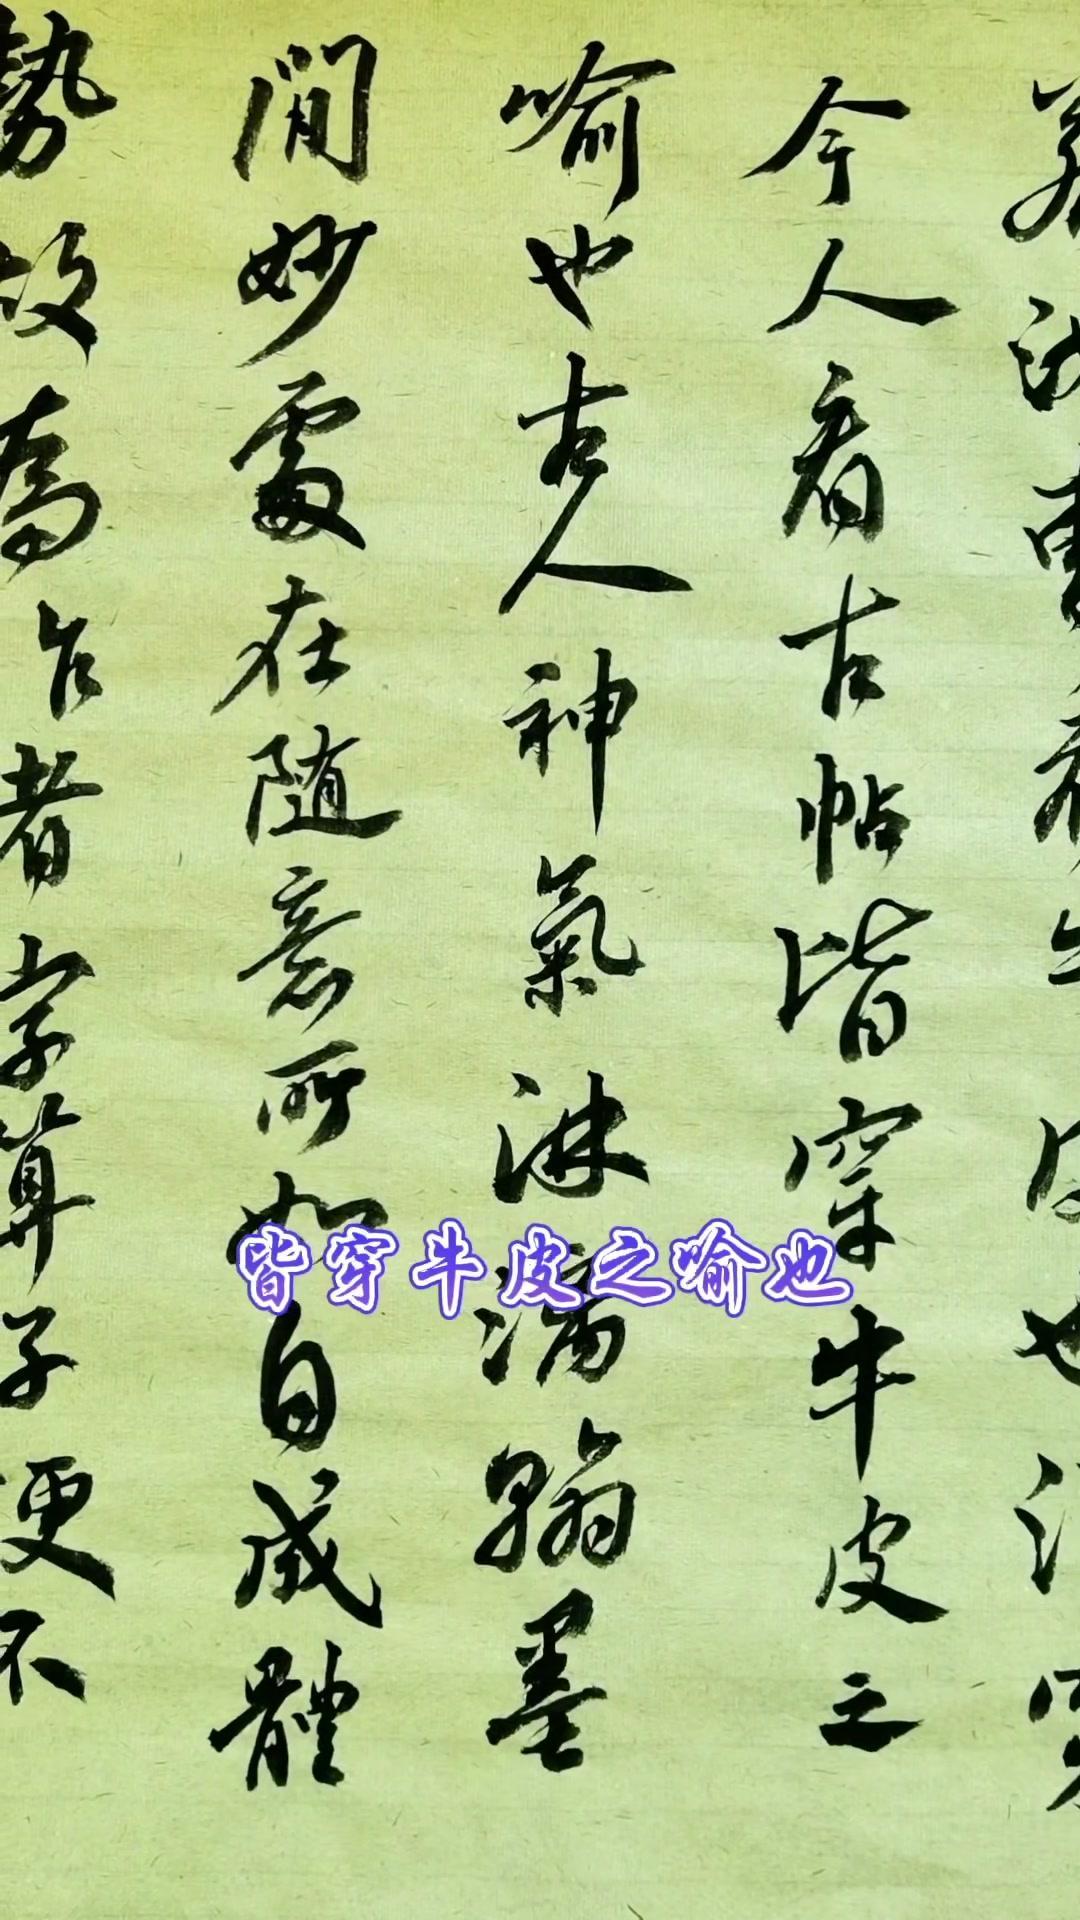 若汝曹看牛皮也須穿
今人看古帖皆穿牛皮之
喻也古人神氣淋漓翰墨
間妙處在隨意所如自成體
勢故為作者字算子便不
皆穿牛皮之喻也